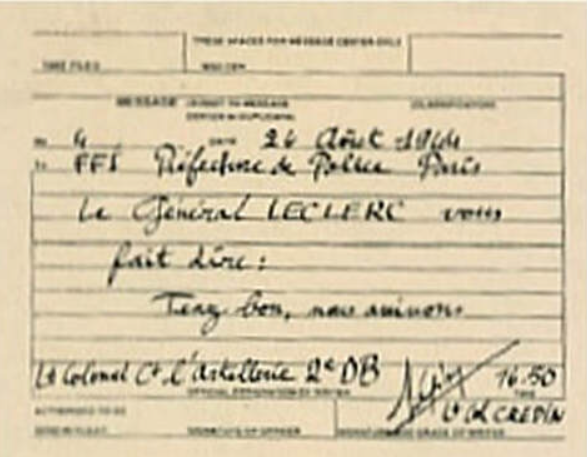 THESE SPACES FOR MESSAGE CENTER ONLY
TIME FILED MSG CEN
MESSAGE (SUBMIT TO MESSAGE CENTER IN DUPLICATE) CLASSIFICATION
No 4 DATE 24 Août 1944
To FFI Préfecture de Police Paris
Le Général LECLERC vous
fait dire :
Tenez bon, nous arrivons
Lt Colonel Ct l'artillerie 2e DB 16.50
OFFICIAL DESIGNATION OF WRITER TIME
Lt Col CREPIN
AUTHORIZED TO BE
SEND IN CLEAR SIGNATURE OF OFFICER SIGNATURE AND GRADE OF WRITER